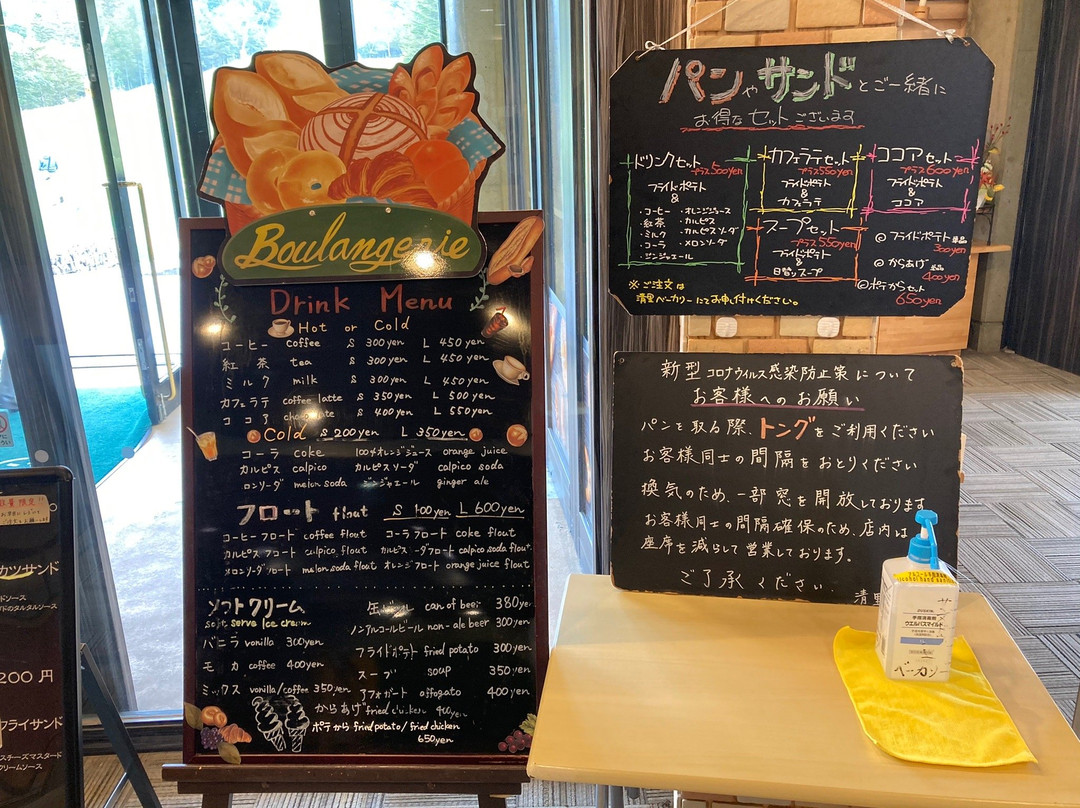 Boulangerie
Drink Menu
Hot or Cold
コーヒー coffee S 300yen L 450yen
紅茶 tea S 300yen L 450yen
ミルク milk S 300yen L 450yen
カフェラテ coffee latte S 350yen L 500yen
ココア S 400yen L 550yen
Cold S 200yen L 350yen
コーラ coke 100%オレンジジュース orange juice
カルピス calpico カルピスソーダ calpico soda
メロンソーダ melon soda ジンジャエール ginger ale
フロート float S L 600yen
コーヒーフロート coffee float コーラフロート coke float
カルピスフロート calpico float カルピスソーダフロート calpico soda float
メロンソーダフロート melon soda float オレンジフロート orange juice float
ソフトクリーム
soft serve Ice cream
バニラ vanilla 300yen
モカ coffee 400yen
ミックス vanilla/coffee 350yen
缶ビール can of beer 380yen
ノンアルコールビール non-ale beer 300yen
フライドポテト fried potato 300yen
スープ soup 350yen
アフォガート affogato 400yen
からあげ fried chicken 400yen
ポテから fried potato/fried chicken
650yen
パンやサンドとご一緒に
お得なセットございます
ドリンクセット
プラス500yen
フライドポテト
&
・コーヒー ・オレンジジュース
・紅茶 ・カルピス
・ミルク ・カルピスソーダ
・コーラ ・メロンソーダ
・ジンジャエール
カフェラテセット
プラス550yen
フライドポテト
&
カフェラテ
ココアセット
プラス600yen
フライドポテト
&
ココア
スープセット
プラス550yen
フライドポテト
&
日替りスープ
◎フライドポテト単品
300yen
◎からあげ単品
400yen
◎ポテからセット
650yen
※ご注文は
清里ベーカリーにてお申し付けください。
新型コロナウイルス感染防止策について
お客様へのお願い
パンを取る際、トングをご利用ください
お客様同士の間隔をおとりください
換気のため、一部窓を開放しております
お客様同士の間隔確保のため、店内は
座席を減らして営業しております。
ご了承ください
清里
手指消毒剤
ウエルパスマイルド
ベーカリー
カツサンド
ドのタルタルソース
200円
フライサンド
スチーズマスタード
クリームソース